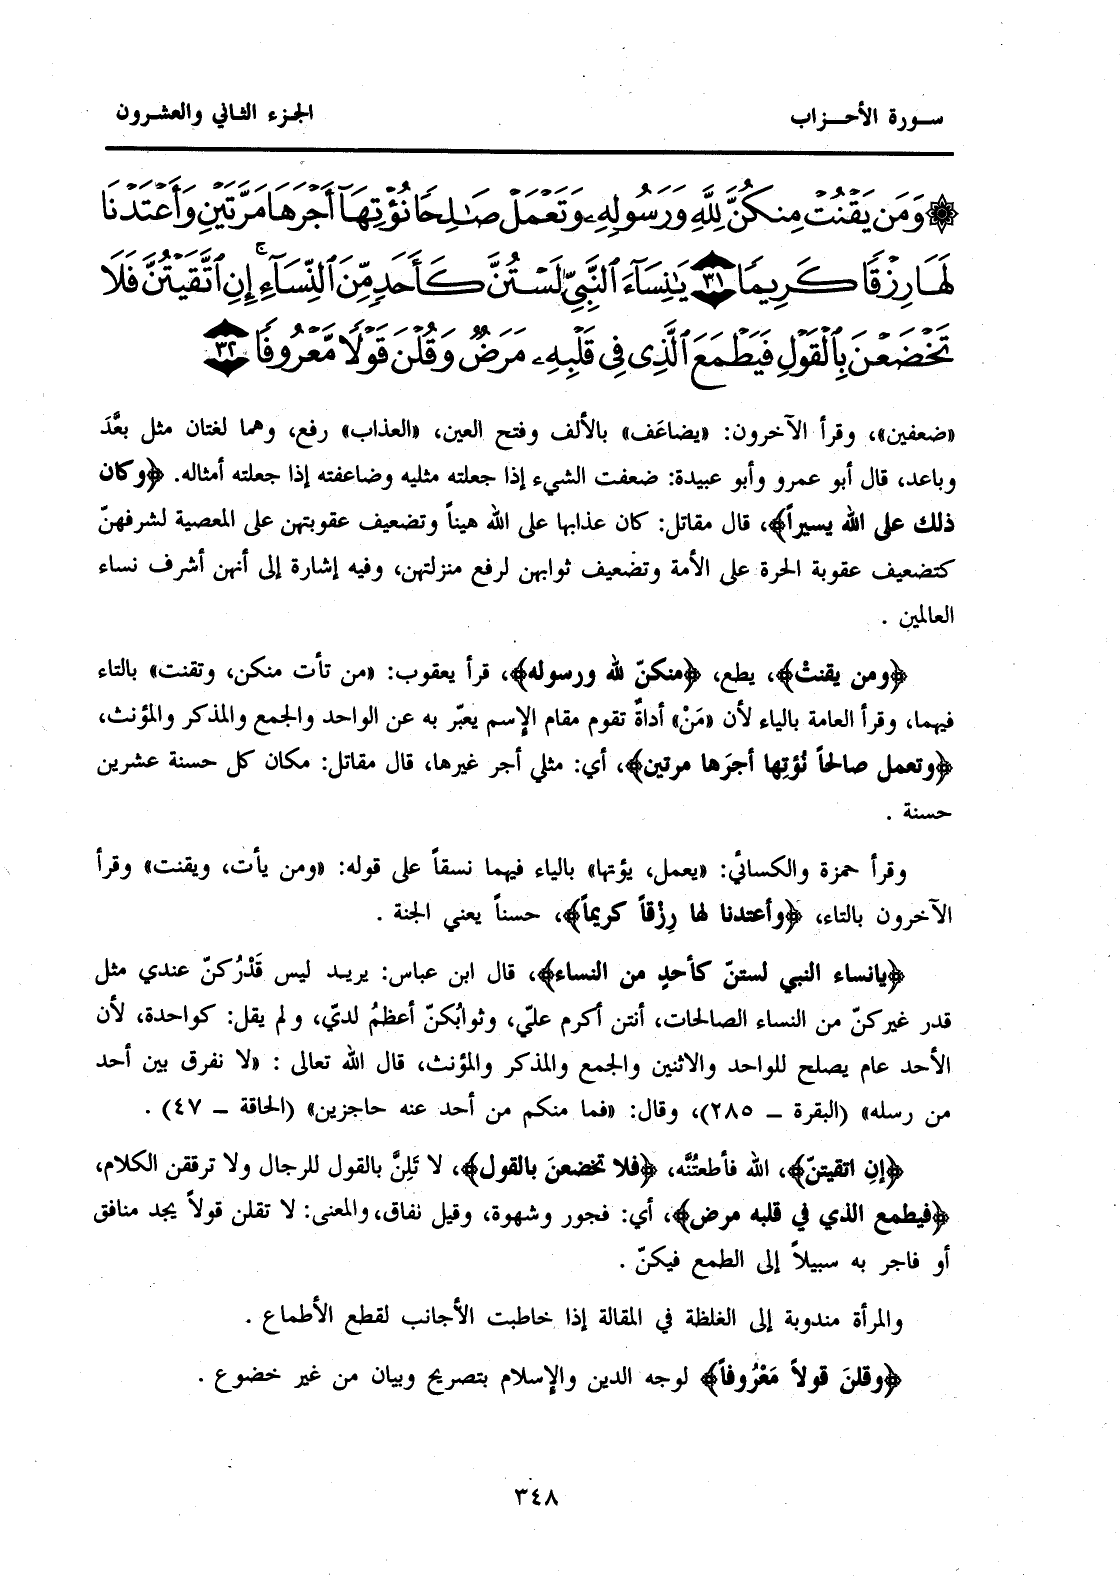 سورة الأحزاب
الجزء الثاني والعشرون
۞ وَمَن يَقْنُتْ مِنكُنَّ لِلَّهِ وَرَسُولِهِۦ وَتَعْمَلْ صَٰلِحًا نُّؤْتِهَآ أَجْرَهَا مَرَّتَيْنِ وَأَعْتَدْنَا
لَهَا رِزْقًا كَرِيمًا ٣١ يَٰنِسَآءَ ٱلنَّبِىِّ لَسْتُنَّ كَأَحَدٍ مِّنَ ٱلنِّسَآءِ ۚ إِنِ ٱتَّقَيْتُنَّ فَلَا
تَخْضَعْنَ بِٱلْقَوْلِ فَيَطْمَعَ ٱلَّذِى فِى قَلْبِهِۦ مَرَضٌ وَقُلْنَ قَوْلًا مَّعْرُوفًا ٣٢
«ضعفين»، وقرأ الآخرون: «يضاعَف» بالألف وفتح العين، «العذاب» رفع، وهما لغتان مثل بعَّدَ
وباعد، قال أبو عمرو وأبو عبيدة: ضعفت الشيء إذا جعلته مثليه وضاعفته إذا جعلته أمثاله. ﴿وكان
ذلك على الله يسيراً﴾، قال مقاتل: كان عذابها على الله هيناً وتضعيف عقوبتهن على المعصية لشرفهنّ
كتضعيف عقوبة الحرة على الأمة وتضعيف ثوابهن لرفع منزلتهن، وفيه إشارة إلى أنهن أشرف نساء
العالمين .
﴿ومن يقنتْ﴾، يطع، ﴿منكنّ لله ورسوله﴾، قرأ يعقوب: «من تأت منكن، وتقنت» بالتاء
فيهما، وقرأ العامة بالياء لأن «مَنْ» أداةٌ تقوم مقام الإسم يعبّر به عن الواحد والجمع والمذكر والمؤنث،
﴿وتعمل صالحاً نُؤتِها أجرَها مرتين﴾، أي: مثلي أجر غيرها، قال مقاتل: مكان كل حسنة عشرين
حسنة .
وقرأ حمزة والكسائي: «يعمل، يؤتها» بالياء فيهما نسقاً على قوله: «ومن يأت، ويقنت» وقرأ
الآخرون بالتاء، ﴿وأعتدنا لها رِزْقاً كريماً﴾، حسناً يعني الجنة .
﴿يانساء النبي لستنّ كأحدٍ من النساء﴾، قال ابن عباس: يريد ليس قَدْرُكنّ عندي مثل
قدر غيركنّ من النساء الصالحات، أنتن أكرم عليّ، وثوابُكنّ أعظمُ لديّ، ولم يقل: كواحدة، لأن
الأحد عام يصلح للواحد والاثنين والجمع والمذكر والمؤنث، قال الله تعالى : «لا نفرق بين أحد
من رسله» (البقرة – ٢٨٥)، وقال: «فما منكم من أحد عنه حاجزين» (الحاقة – ٤٧) .
﴿إنِ اتقيتنّ﴾، الله فأطعتُنَّه، ﴿فلا تخضعنَ بالقول﴾، لا تَلِنَّ بالقول للرجال ولا ترققن الكلام،
﴿فيطمع الذي في قلبه مرض﴾، أي: فجور وشهوة، وقيل نفاق، والمعنى: لا تقلن قولاً يجد منافق
أو فاجر به سبيلاً إلى الطمع فيكنّ .
والمرأة مندوبة إلى الغلظة في المقالة إذا خاطبت الأجانب لقطع الأطماع .
﴿وقلنَ قولاً مَعْرُوفاً﴾ لوجه الدين والإسلام بتصريح وبيان من غير خضوع .
٣٤٨